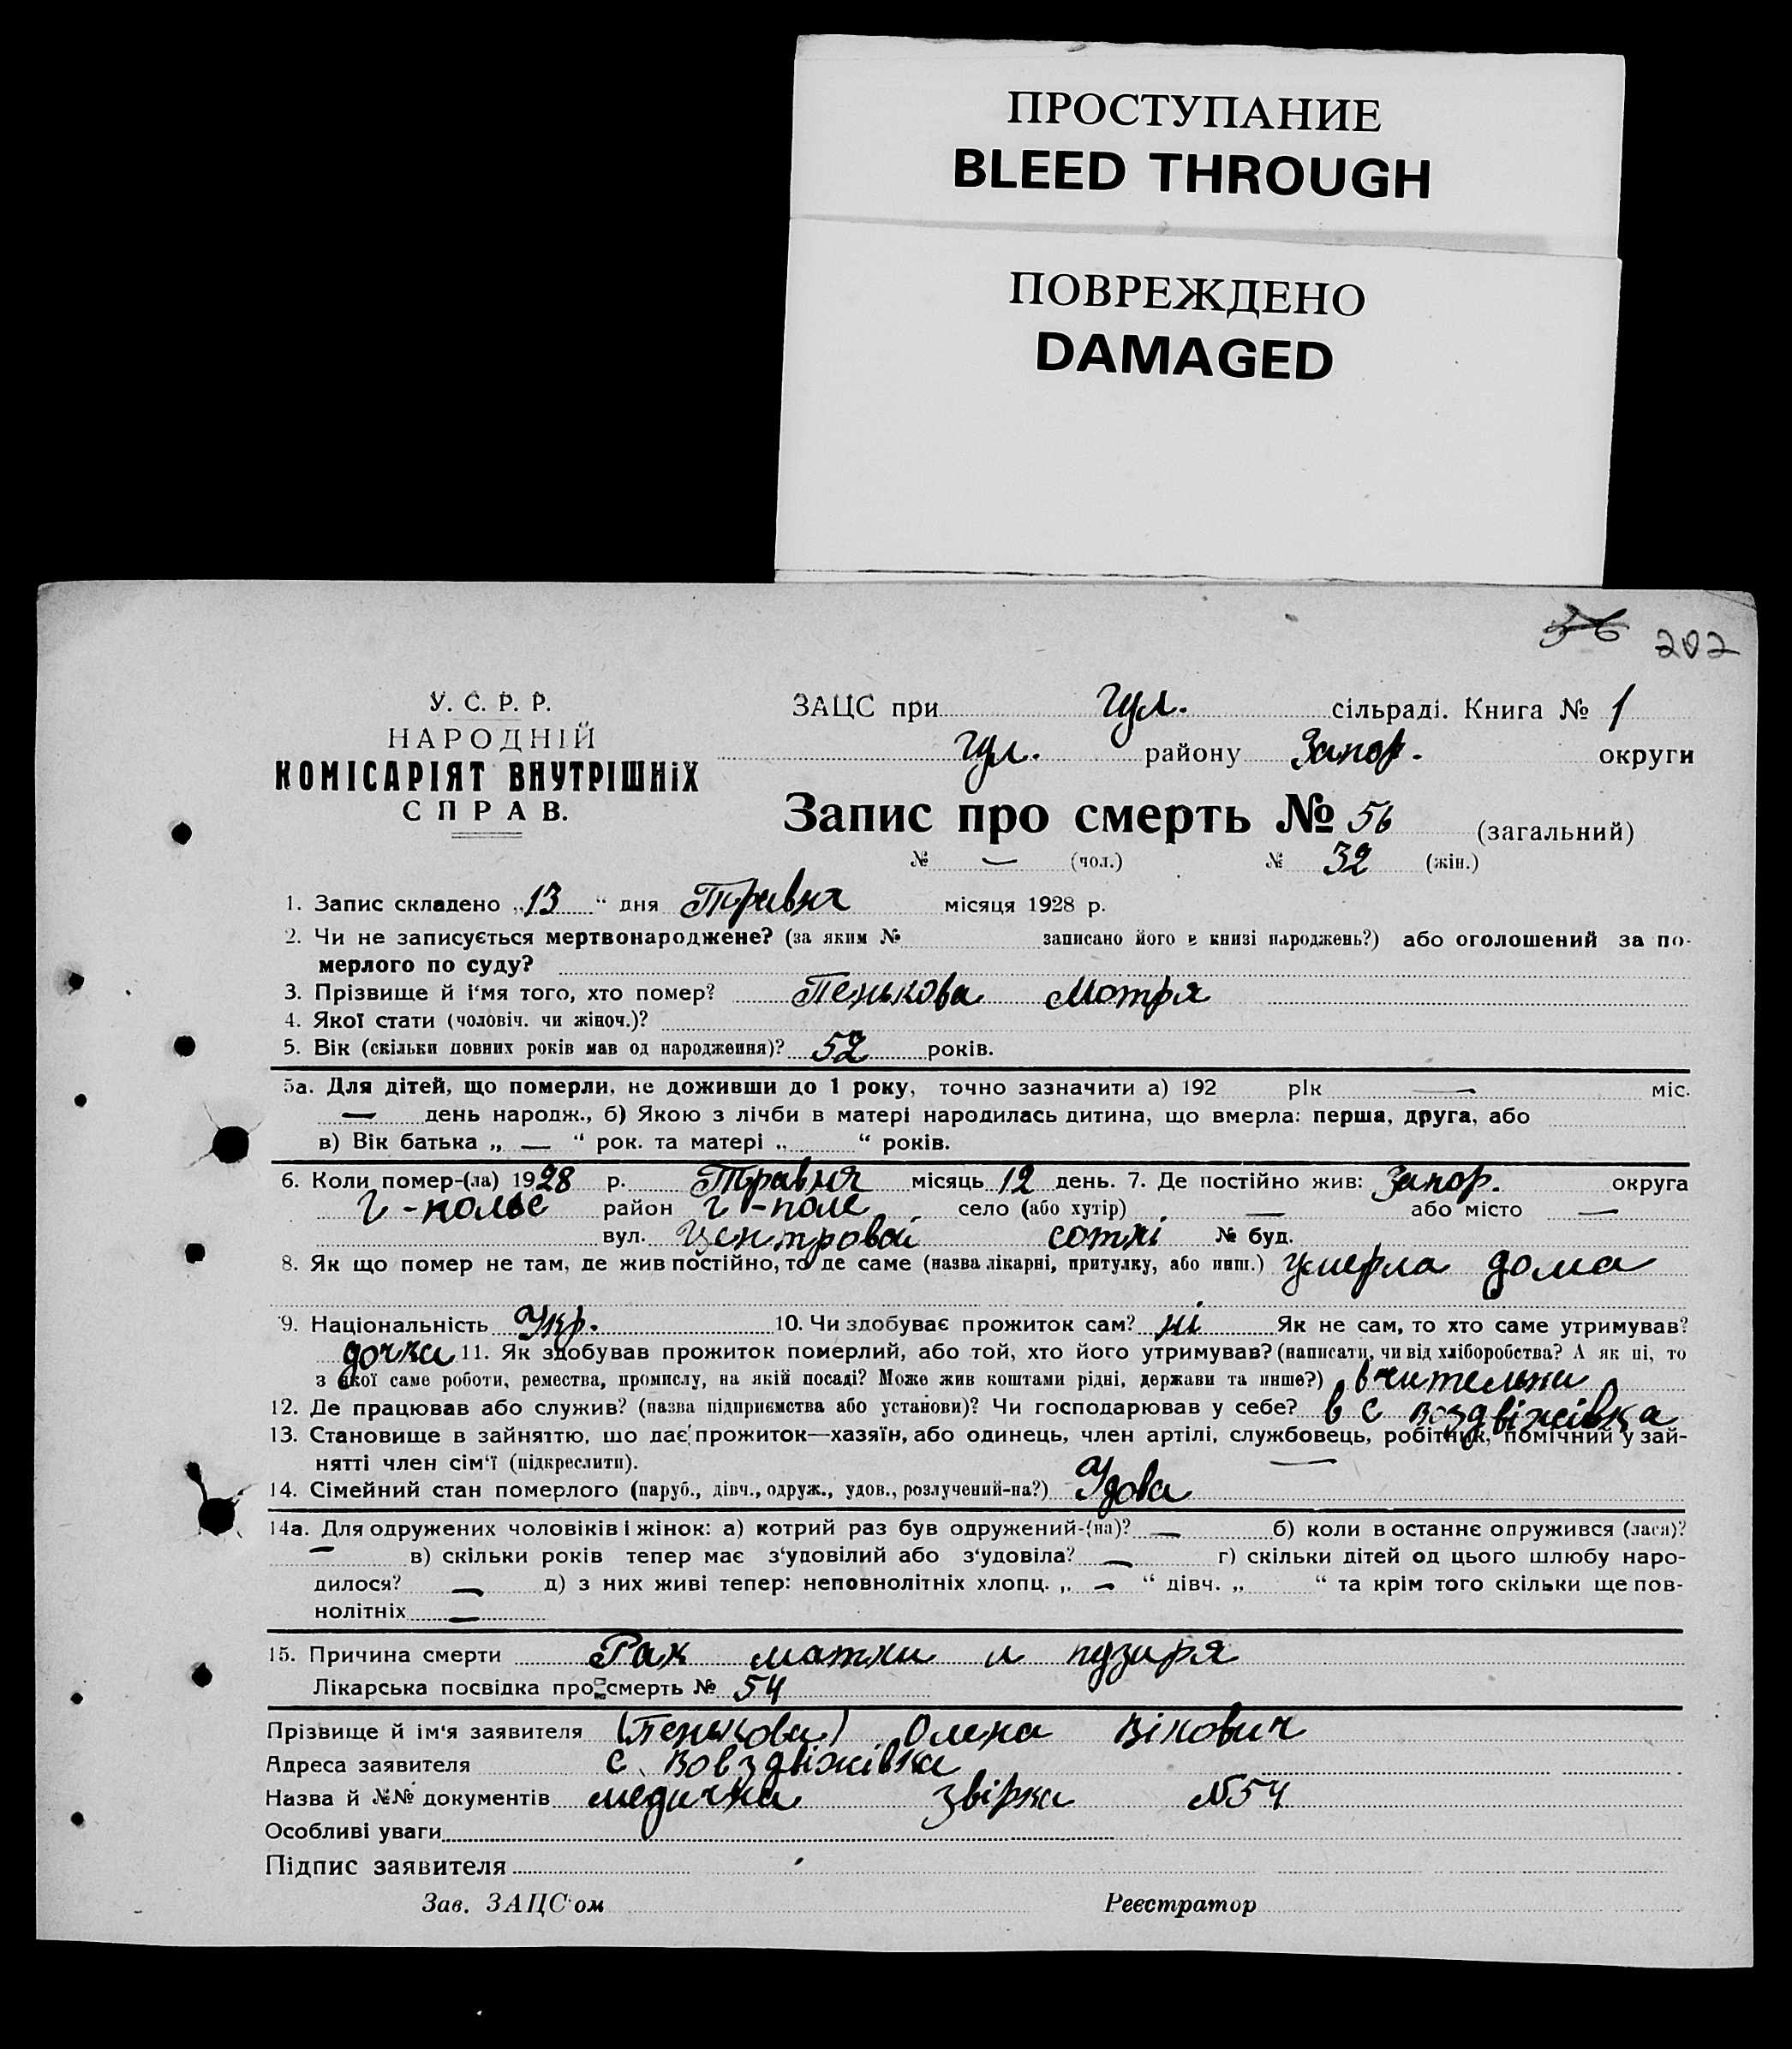 ПРОСТУПАНИЕ
BLEED THROUGH
ПОВРЕЖДЕНО
DAMAGED
36 202
У. С. Р. Р.
НАРОДНІЙ
КОМІСАРІЯТ ВНУТРІШНІХ
СПРАВ.
ЗАЦС при Гул. сільраді. Книга № 1
Гул. району Запор. округи
Запис про смерть № 56 (загальний)
№ — (чол.) № 32 (жін.)
1. Запис складено „13“ дня Травня місяця 1928 р.
2. Чи не записується мертвонароджене? (за яким № записано його в книзі народжень?) або оголошений за по-
мерлого по суду?
3. Прізвище й і'мя того, хто помер? Пенькова Мотря
4. Якої стати (чоловіч. чи жіноч.)?
5. Вік (скільки повних років мав од народження)? 52 років.
5а. Для дітей, що померли, не доживши до 1 року, точно зазначити а) 192 рік — міс.
— день народж., б) Якою з лічби в матері народилась дитина, що вмерла: перша, друга, або
в) Вік батька „ — “ рок. та матері „ “ років.
6. Коли помер-(ла) 1928 р. Травня місяць 12 день. 7. Де постійно жив: Запор. округа
Г-польс район Г-поле село (або хутір) — або місто —
вул. Центровой сотні № буд.
8. Як що помер не там, де жив постійно, то де саме (назва лікарні, притулку, або инш.) умерла дома
9. Національність Укр. 10. Чи здобуває прожиток сам? ні Як не сам, то хто саме утримував?
дочка 11. Як здобував прожиток померлий, або той, хто його утримував? (написати, чи від хліборобства? А як ні, то
з якої саме роботи, ремества, промислу, на якій посаді? Може жив коштами рідні, держави та инше?) вчительки
12. Де працював або служив? (назва підприємства або установи)? Чи господарював у себе? в с Воздвіжівка
13. Становище в зайняттю, що дає прожиток—хазяїн, або одинець, член артілі, службовець, робітник, помічний у зай-
нятті член сім'ї (підкреслити). —
14. Сімейний стан померлого (паруб., дівч., одруж., удов., розлучений-на?) Удова
14а. Для одружених чоловіків і жінок: а) котрий раз був одружений-(на)? — б) коли в останнє одружився (лася)?
— в) скільки років тепер має з'удовілий або з'удовіла? — г) скільки дітей од цього шлюбу наро-
дилося? — д) з них живі тепер: неповнолітніх хлопц. „ — “ дівч. „ “ та крім того скільки ще пов-
нолітніх —
15. Причина смерти Рак матки и пузиря
Лікарська посвідка про смерть № 54
Прізвище й ім'я заявителя (Пенькова) Олена Вікович
Адреса заявителя с. Вовздвіжівка
Назва й №№ документів медична звірка №54
Особливі уваги
Підпис заявителя
Зав. ЗАЦС'ом Реєстратор